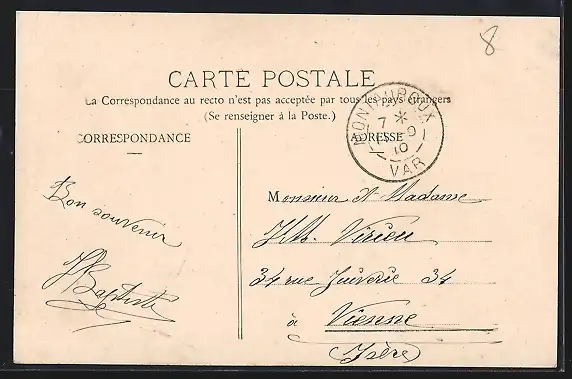 8
CARTE POSTALE
La Correspondance au recto n'est pas acceptée par tous les pays étrangers
(Se renseigner à la Poste.)
MONTAUROUX
7 *
10
VAR
CORRESPONDANCE
ADRESSE
Bon souvenir
Baptiste
Monsieur et Madame
Virieu
34 rue Juiverie 34
à Vienne
(Isère)